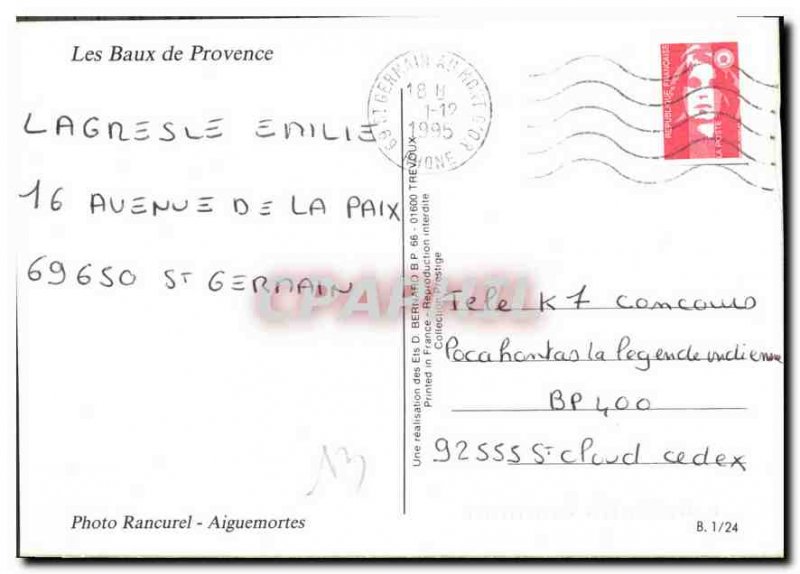 Les Baux de Provence
69 ST GERMAIN AU MONT D'OR
18 H
1-12
1995
RHONE
REPUBLIQUE FRANÇAISE
LA POSTE
LAGRESLE EMILIE
16 AVENUE DE LA PAIX
69650 ST GERMAIN
CPAPHIL
Une réalisation des Ets D. BERNARD B.P. 66 - 01600 TREVOUX
Printed in France - Reproduction interdite
Collection Prestige
Tele K7 concours
Pocahontas la legende indienne
BP 400
92555 St cloud cedex
Photo Rancurel - Aiguemortes
B. 1/24